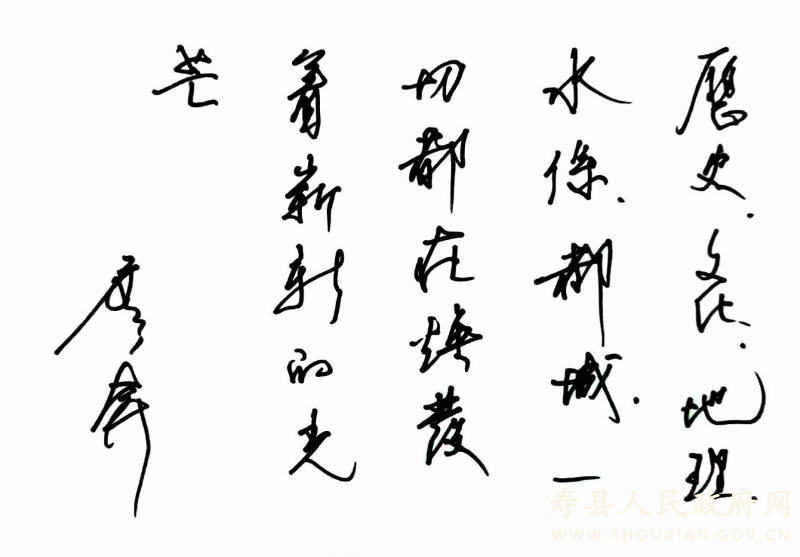 歷史.文化.地理.
水係.都城.一
切都在焕發
着嶄新的光
芒
廖奔
寿县人民政府网
WWW.SHOUXIAN.GOV.CN